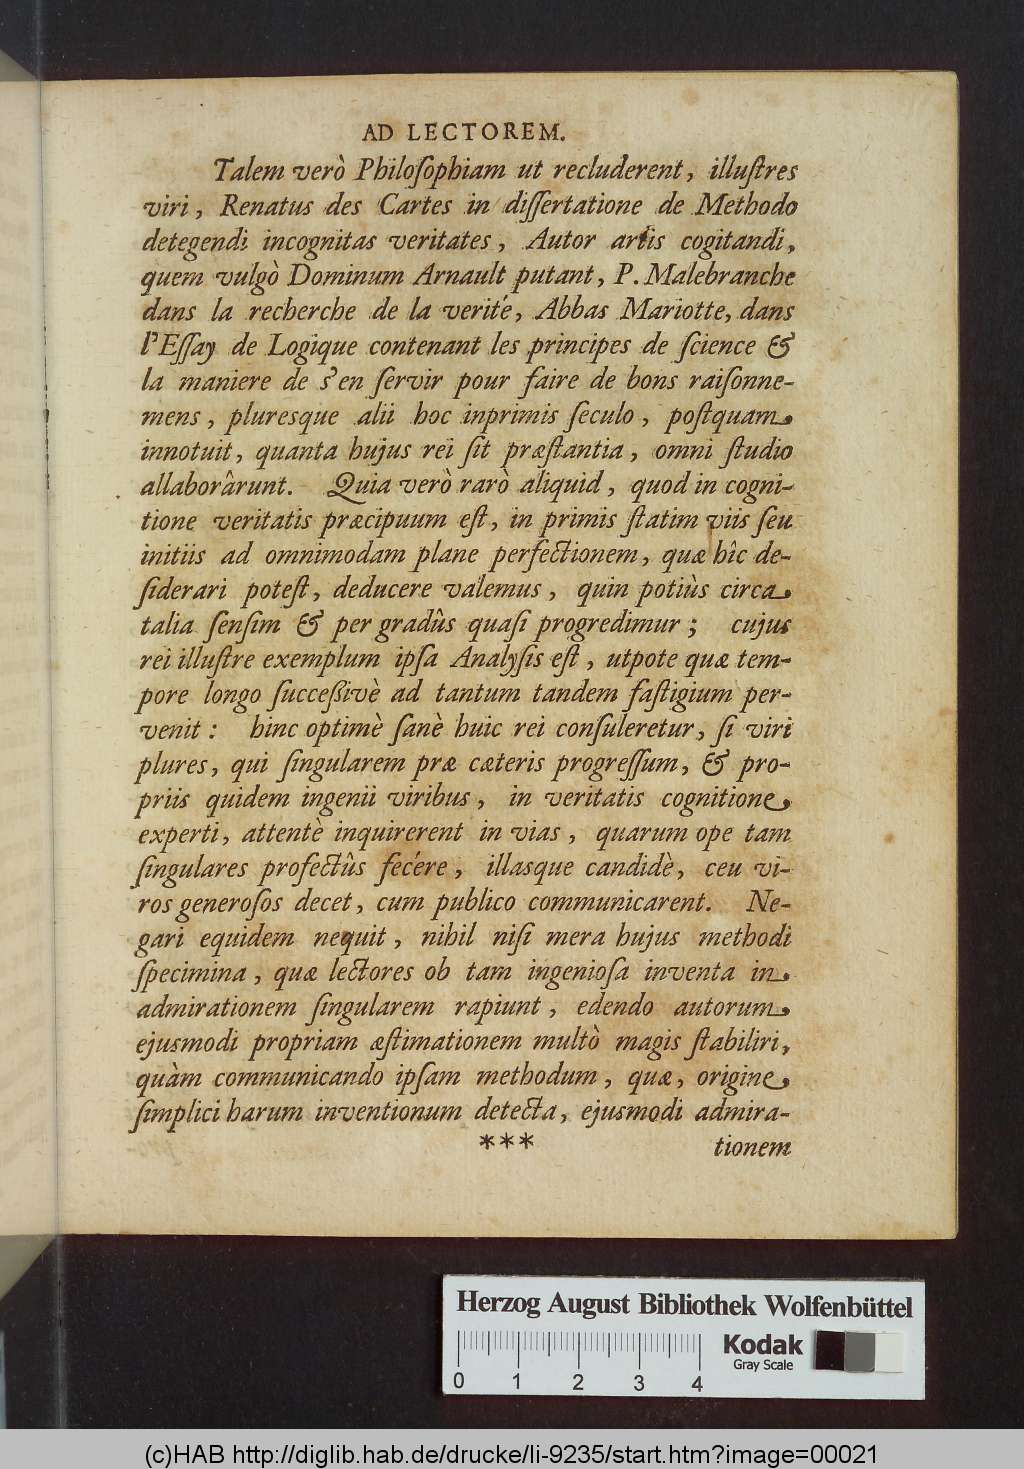 AD LECTOREM.
Talem verò Philoſophiam ut recluderent, illuſtres
viri, Renatus des Cartes in diſſertatione de Methodo
detegendi incognitas veritates, Autor artis cogitandi,
quem vulgò Dominum Arnault putant, P. Malebranche
dans la recherche de la verité, Abbas Mariotte, dans
l'Eſſay de Logique contenant les principes de ſcience &
la maniere de s'en ſervir pour faire de bons raiſonne-
mens, pluresque alii hoc inprimis ſeculo, poſtquam
innotuit, quanta hujus rei ſit præſtantia, omni ſtudio
allaborârunt. Quia verò rarò aliquid, quod in cogni-
tione veritatis præcipuum eſt, in primis ſtatim viis ſeu
initiis ad omnimodam plane perfectionem, quæ hîc de-
ſiderari poteſt, deducere valemus, quin potiùs circa
talia ſenſim & per gradûs quaſi progredimur; cujus
rei illuſtre exemplum ipſa Analyſis eſt, utpote quæ tem-
pore longo ſucceßivè ad tantum tandem faſtigium per-
venit: hinc optimè ſanè huic rei conſuleretur, ſi viri
plures, qui ſingularem præ cæteris progreſſum, & pro-
priis quidem ingenii viribus, in veritatis cognitione
experti, attentè inquirerent in vias, quarum ope tam
ſingulares profectûs fecére, illasque candidè, ceu vi-
ros generoſos decet, cum publico communicarent. Ne-
gari equidem nequit, nihil niſi mera hujus methodi
ſpecimina, quæ lectores ob tam ingenioſa inventa in
admirationem ſingularem rapiunt, edendo autorum
ejusmodi propriam æſtimationem multò magis ſtabiliri,
quàm communicando ipſam methodum, quæ, origine
ſimplici harum inventionum detecta, ejusmodi admira-
*** tionem
Herzog August Bibliothek Wolfenbüttel
Kodak
Gray Scale
0 1 2 3 4
(c)HAB http://diglib.hab.de/drucke/li-9235/start.htm?image=00021